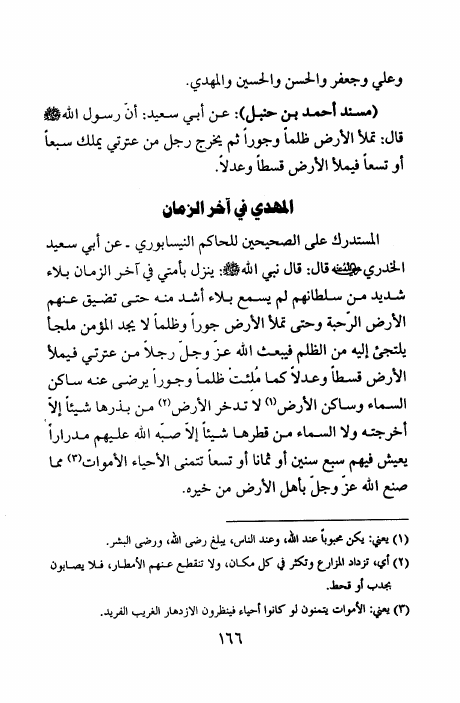 وعلي وجعفر والحسن والحسين والمهدي.
(مسند أحمد بن حنبل): عن أبي سعيد: أنّ رسول الله ﷺ
قال: تملأ الأرض ظلماً وجوراً ثم يخرج رجل من عترتي يملك سبعاً
أو تسعاً فيملأ الأرض قسطاً وعدلاً.
المهدي في آخر الزمان
المستدرك على الصحيحين للحاكم النيسابوري ـ عن أبي سعيد
الخدري رضي الله عنه قال: قال نبي الله ﷺ: ينزل بأمتي في آخر الزمان بلاء
شديد من سلطانهم لم يسمع بلاء أشد منه حتى تضيق عنهم
الأرض الرّحبة وحتى تملأ الأرض جوراً وظلماً لا يجد المؤمن ملجأ
يلتجئ إليه من الظلم فيبعث الله عزّ وجلّ رجلاً من عترتي فيملأ
الأرض قسطاً وعدلاً كما مُلئتْ ظلماً وجوراً يرضى عنه ساكن
السماء وساكن الأرض(١) لا تدخر الأرض(٢) من بذرها شيئاً إلاّ
أخرجته ولا السماء من قطرها شيئاً إلاّ صبّه الله عليهم مدراراً
يعيش فيهم سبع سنين أو ثمانا أو تسعاً تتمنى الأحياء الأموات(٣) مما
صنع الله عزّ وجلّ بأهل الأرض من خيره.
(١) يعني: يكن محبوباً عند الله، وعند الناس، يبلغ رضى الله، ورضى البشر.
(٢) أي، تزداد المزارع وتكثر في كل مكان، ولا تنقطع عنهم الأمطار، فلا يصابون
بجدب أو قحط.
(٣) يعني: الأموات يتمنون لو كانوا أحياء فينظرون الازدهار الغريب الفريد.
١٦٦